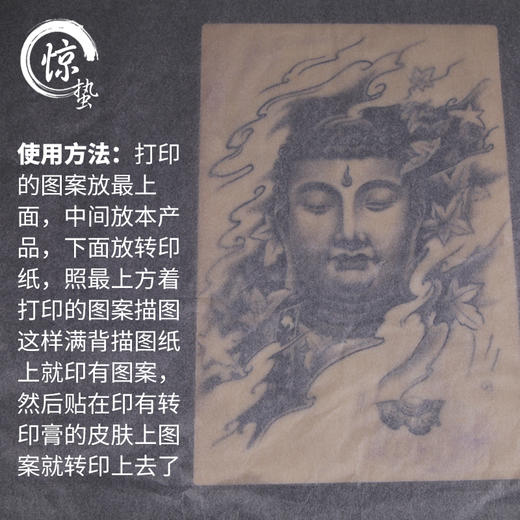 惊
蛰
使用方法：打印
的图案放最上
面，中间放本产
品，下面放转印
纸，照最上方着
打印的图案描图
这样满背描图纸
上就印有图案，
然后贴在印有转
印膏的皮肤上图
案就转印上去了